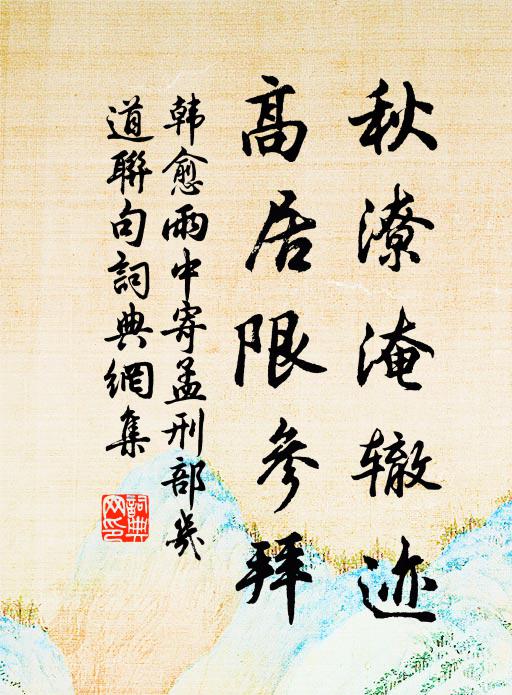 秋潦淹辙迹
高居限参拜
韩愈雨中寄孟刑部几
道聯句詞典網集
詞典
网印